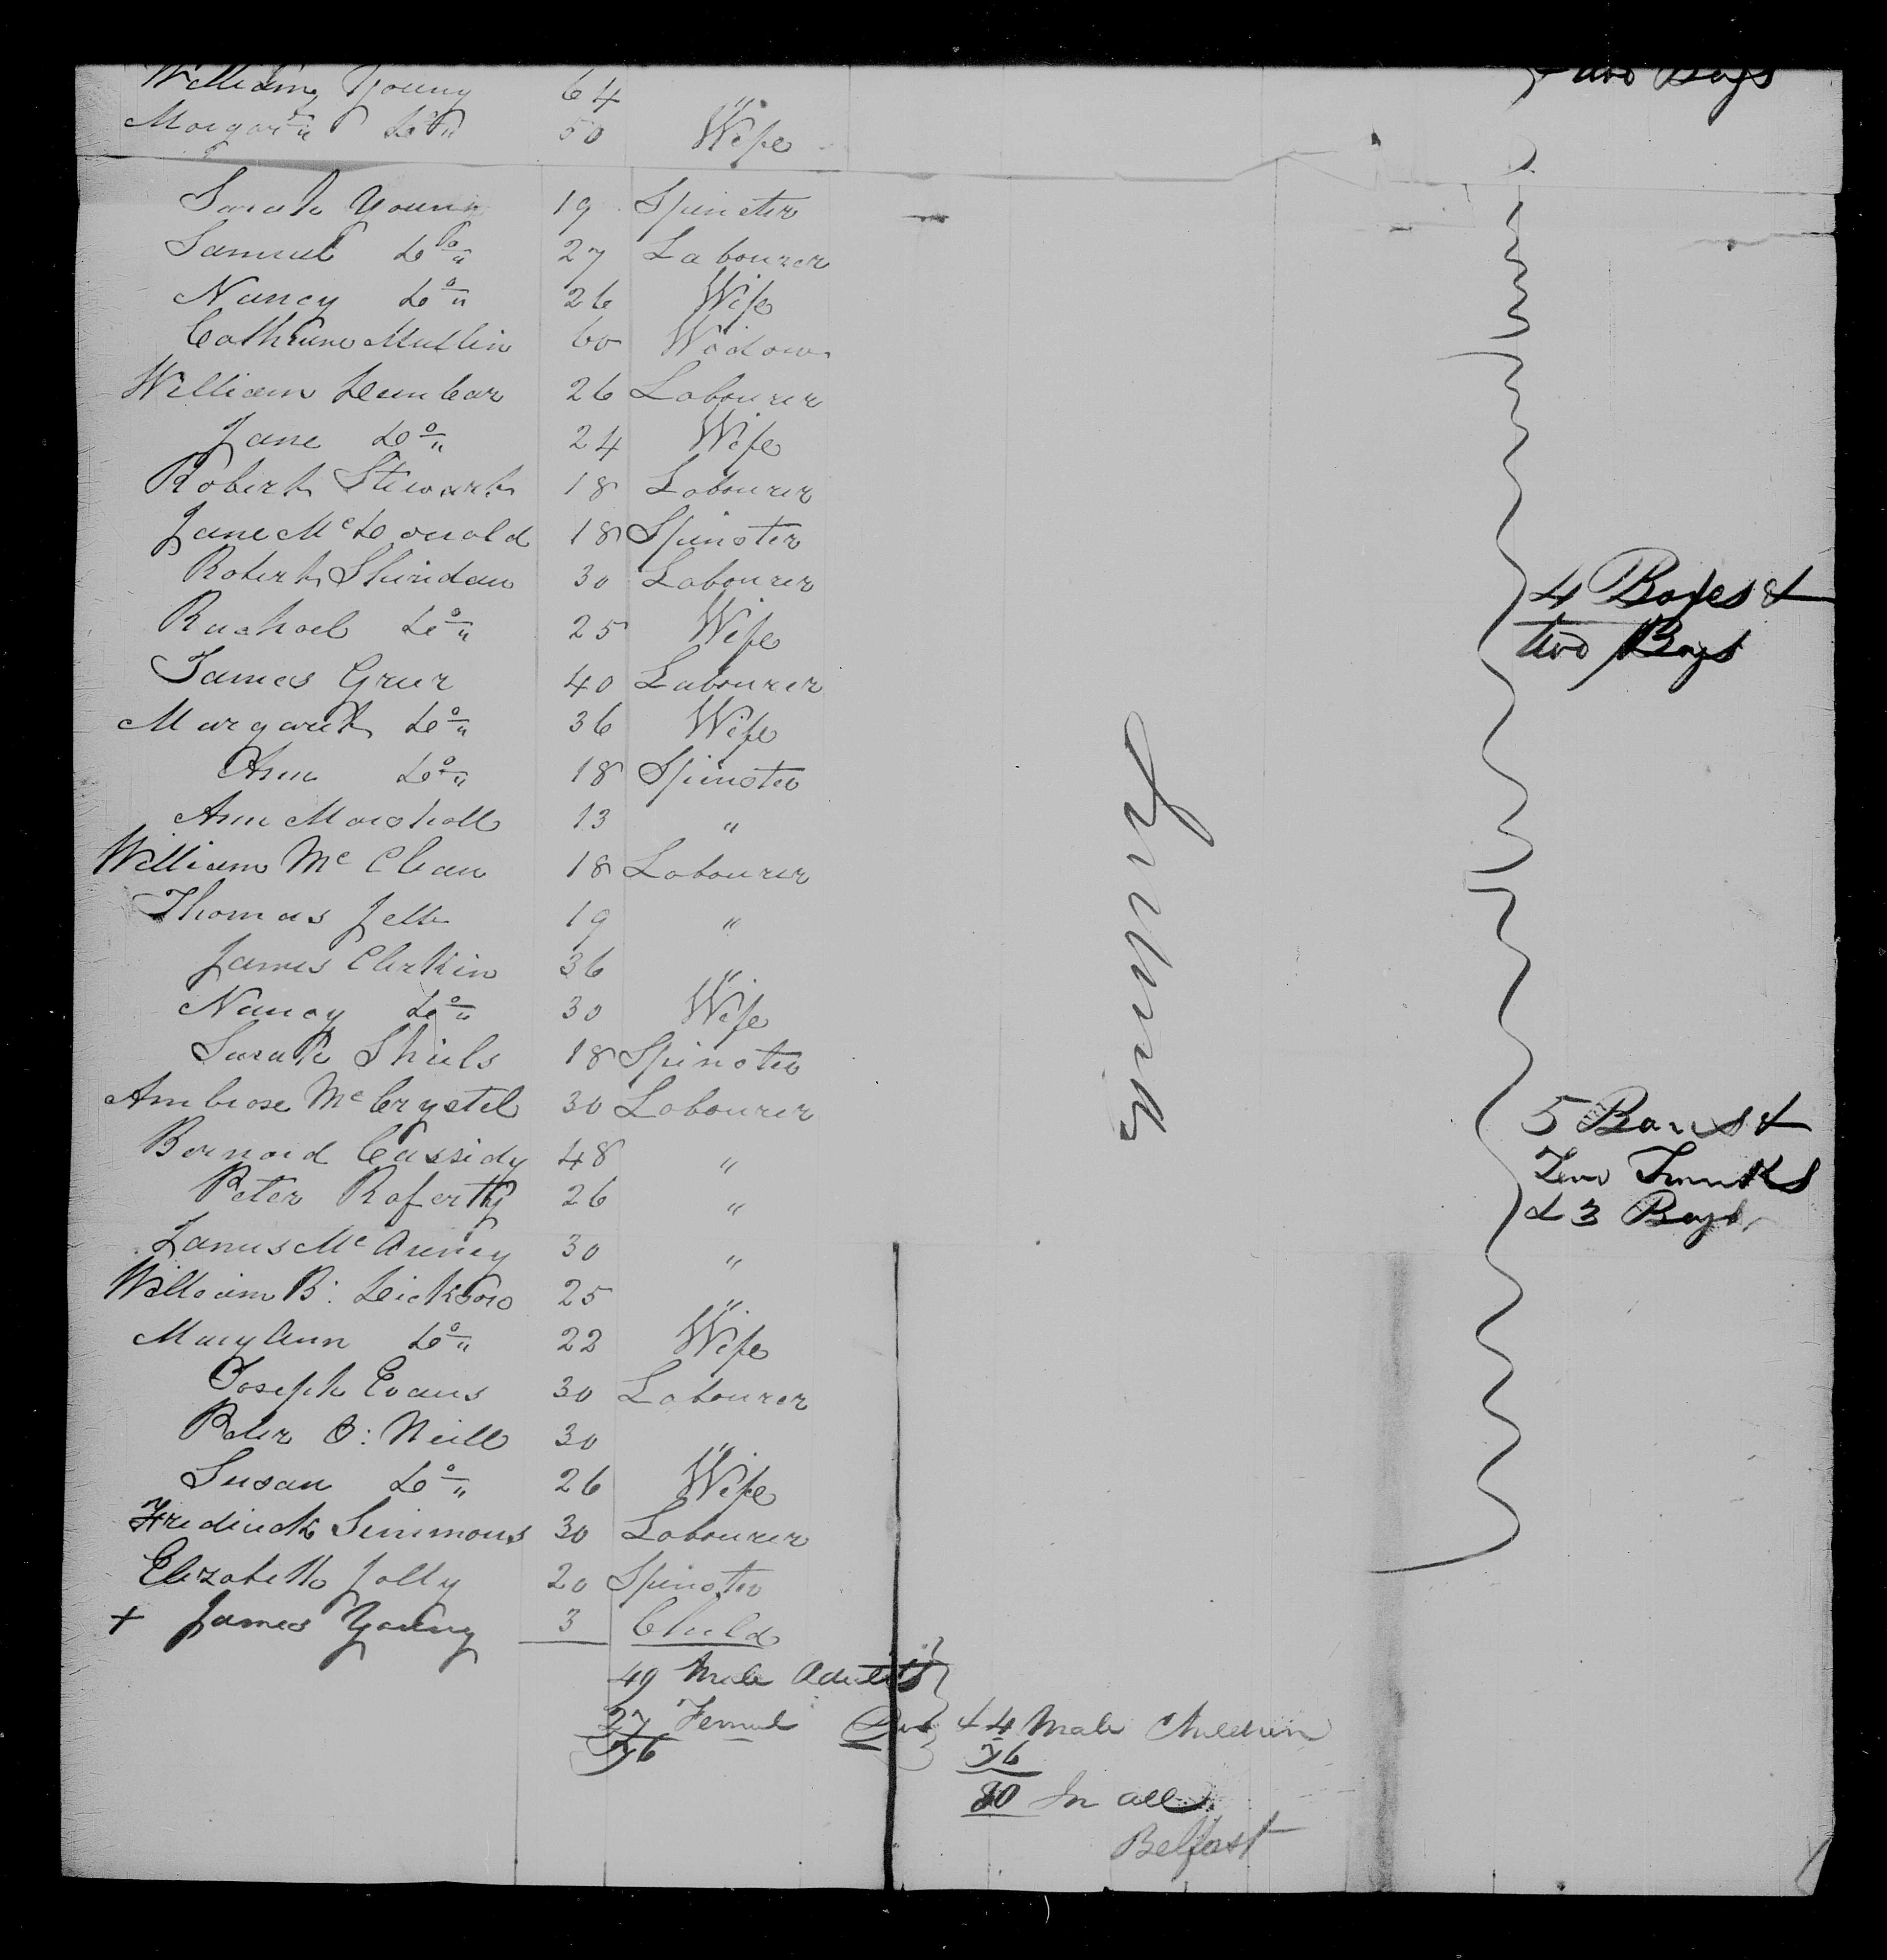 William Young 64 "
Margart Do " 50 Wife
Sarah Young 19 Spinster
Samuel Do " 27 Labourer
Nancy Do " 26 Wife
Cathrine Mullin 60 Widow
William Dunbar 26 Labourer
Jane Do " 24 Wife
Robert Stewart 18 Labourer
Jane McDonald 18 Spinster
Robert Shiridan 30 Labourer
Rachael Do " 25 Wife
James Greer 40 Labourer
Margaret Do " 36 Wife
Ann Do " 18 Spinster
Ann Marshall 13 "
William McClean 18 Labourer
Thomas Jelly 19 "
James Clerkin 36 "
Nancy Do " 30 Wife
Sarah Shiels 18 Spinster
Ambrose McCrystel 30 Labourer
Bernard Cassidy 48 "
Peter Raferty 26 "
James McAreney 30 "
William B: Dickson 25 "
Mary Ann Do " 22 Wife
Joseph Evans 30 Labourer
Peter O:Neill 30 "
Susan Do " 26 Wife
Fredirick Simmons 30 Labourer
Elizabeth Jolly 20 Spinster
+ James Young 3 Child
49 Male Adults
27 Femal Do & 4 Male Children
76 76
80 In all
Belfast
two Bags
4 Boxes &
two Bags
5 Boxes &
Two Trunks
& 3 Bags